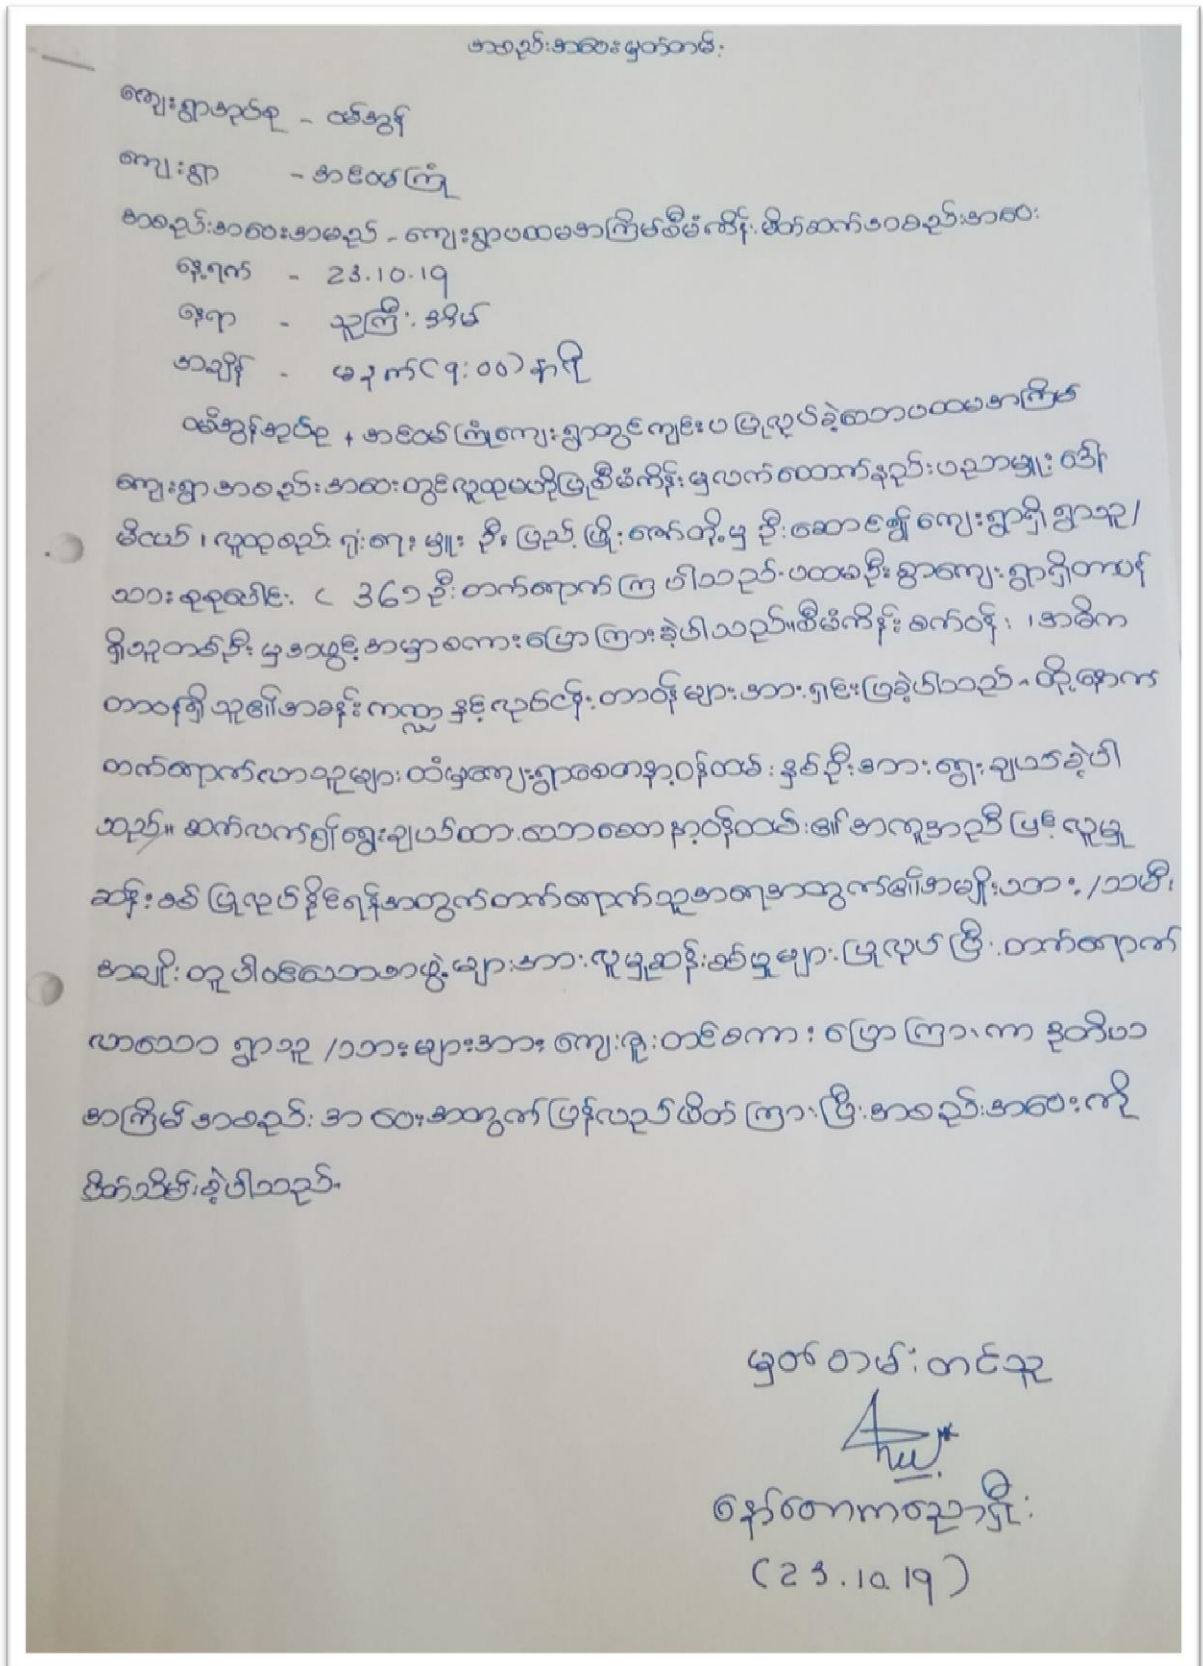 အစည်းအဝေးမှတ်တမ်း
ကျေးရွာအုပ်စု - ထမ်အွန်
ကျေးရွာ - အင်ထမ်ကြုံ
အစည်းအဝေးအမည် - ကျေးရွာပထမအကြိမ်စီမံကိန်းမိတ်ဆက်အစည်းအဝေး
နေ့ရက် - 23.10.19
နေရာ - သူကြီးအိမ်
အချိန် - မနက်(၅:၀၀)နာရီ
အုပ်စု ၊ ကျေးရွာတွင်ကျင်းပပြုလုပ်ခဲ့သောပထမအကြိမ်
ကျေးရွာအစည်းအဝေးတွင်လူထုဗဟိုပြုစီမံကိန်းမှလက်ထောက်နည်းပညာမှူး ဒေါ်
၊ လူထုစည်းရုံးရေးမှူး ဦးပြည့်ဖြိုးဇော်တို့မှဦးဆောင်၍ကျေးရွာရှိရွာသူ/
သားစုစုပေါင်း ( 36၁ဦးတက်ရောက်ကြပါသည်။ပထမဦးစွာကျေးရွာရှိတာဝန်
ရှိသူတစ်ဦးမှအဖွင့်အမှာစကားပြောကြားခဲ့ပါသည်။စီမံကိန်းစက်ဝန်း ၊အဓိက
တာဝန်ရှိသူ၏အခန်းကဏ္ဍနှင့်လုပ်ငန်းတာဝန်များအားရှင်းပြခဲ့ပါသည်။ထို့နောက်
တက်ရောက်လာသူများထဲမှကျေးရွာစေတနာ့ဝန်ထမ်းနှစ်ဦးအားရွေးချယ်ခဲ့ပါ
သည်။ ဆက်လက်၍ရွေးချယ်ထားသောစေတနာ့ဝန်ထမ်း၏အကူအညီဖြင့်လူမှု
ဆန်းစစ်ပြုလုပ်နိုင်ရန်အတွက်တက်ရောက်သူအရေအတွက်၏အမျိုးသား/သမီး
အချိုးတူပါဝင်သောအဖွဲ့များအားလူမှုဆန်းစစ်မှုများပြုလုပ်ပြီးတက်ရောက်
လာသော ရွာသူ/သားများအား ကျေးဇူးတင်စကားပြောကြားကာ ဒုတိယ
အကြိမ်အစည်းအဝေးအတွက်ပြန်လည်ဖိတ်ကြားပြီးအစည်းအဝေးကို
ပိတ်သိမ်းခဲ့ပါသည်။
မှတ်တမ်းတင်သူ
(23.10.19)